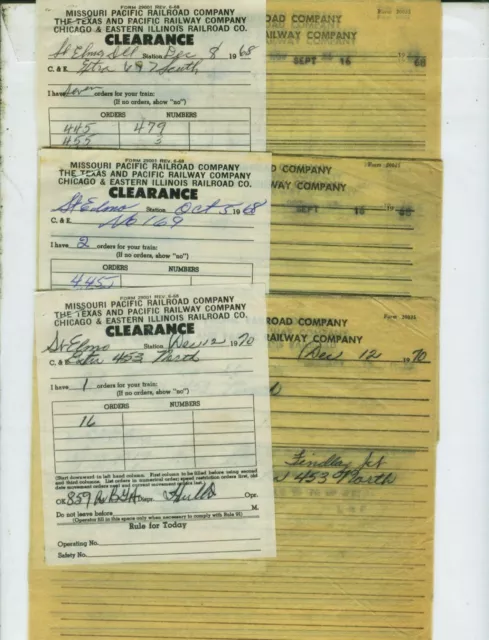 FORM 29001 REV. 6-68
MISSOURI PACIFIC RAILROAD COMPANY
THE TEXAS AND PACIFIC RAILWAY COMPANY
CHICAGO & EASTERN ILLINOIS RAILROAD CO.
CLEARANCE
St Elmo Ill Station Dec 8 1968
C. & E. Extra 697 South
I have Seven orders for your train:
(If no orders, show "no")
ORDERS NUMBERS
445 479
455
RAILROAD COMPANY
RAILWAY COMPANY
SEPT 16 68
FORM 29001 REV. 6-68
MISSOURI PACIFIC RAILROAD COMPANY
THE TEXAS AND PACIFIC RAILWAY COMPANY
CHICAGO & EASTERN ILLINOIS RAILROAD CO.
CLEARANCE
St Elmo Station Oct 5 1968
C. & E. No 169
I have 2 orders for your train:
(If no orders, show "no")
ORDERS NUMBERS
445
Form 29001
COMPANY
RAILWAY COMPANY
SEPT 16 1968
FORM 29001 REV. 6-68
MISSOURI PACIFIC RAILROAD COMPANY
THE TEXAS AND PACIFIC RAILWAY COMPANY
CHICAGO & EASTERN ILLINOIS RAILROAD CO.
CLEARANCE
St Elmo Station Dec 12 1970
C. & E. Extra 453 North
I have 1 orders for your train:
(If no orders, show "no")
ORDERS NUMBERS
16
(Start downward in left hand column. First column to be filled before using second
and third column. List orders in numerical order; speed restriction orders first, old
date movement orders next and current movement orders last.)
OK 859 Disp. Opr.
Do not leave before M.
(Operator fill in this space only when necessary to comply with Rule 91)
Rule for Today
Operating No.
Safety No.
RAILROAD COMPANY
RAILWAY COMPANY
Dec 12 1970
Findlay Jct
453 North